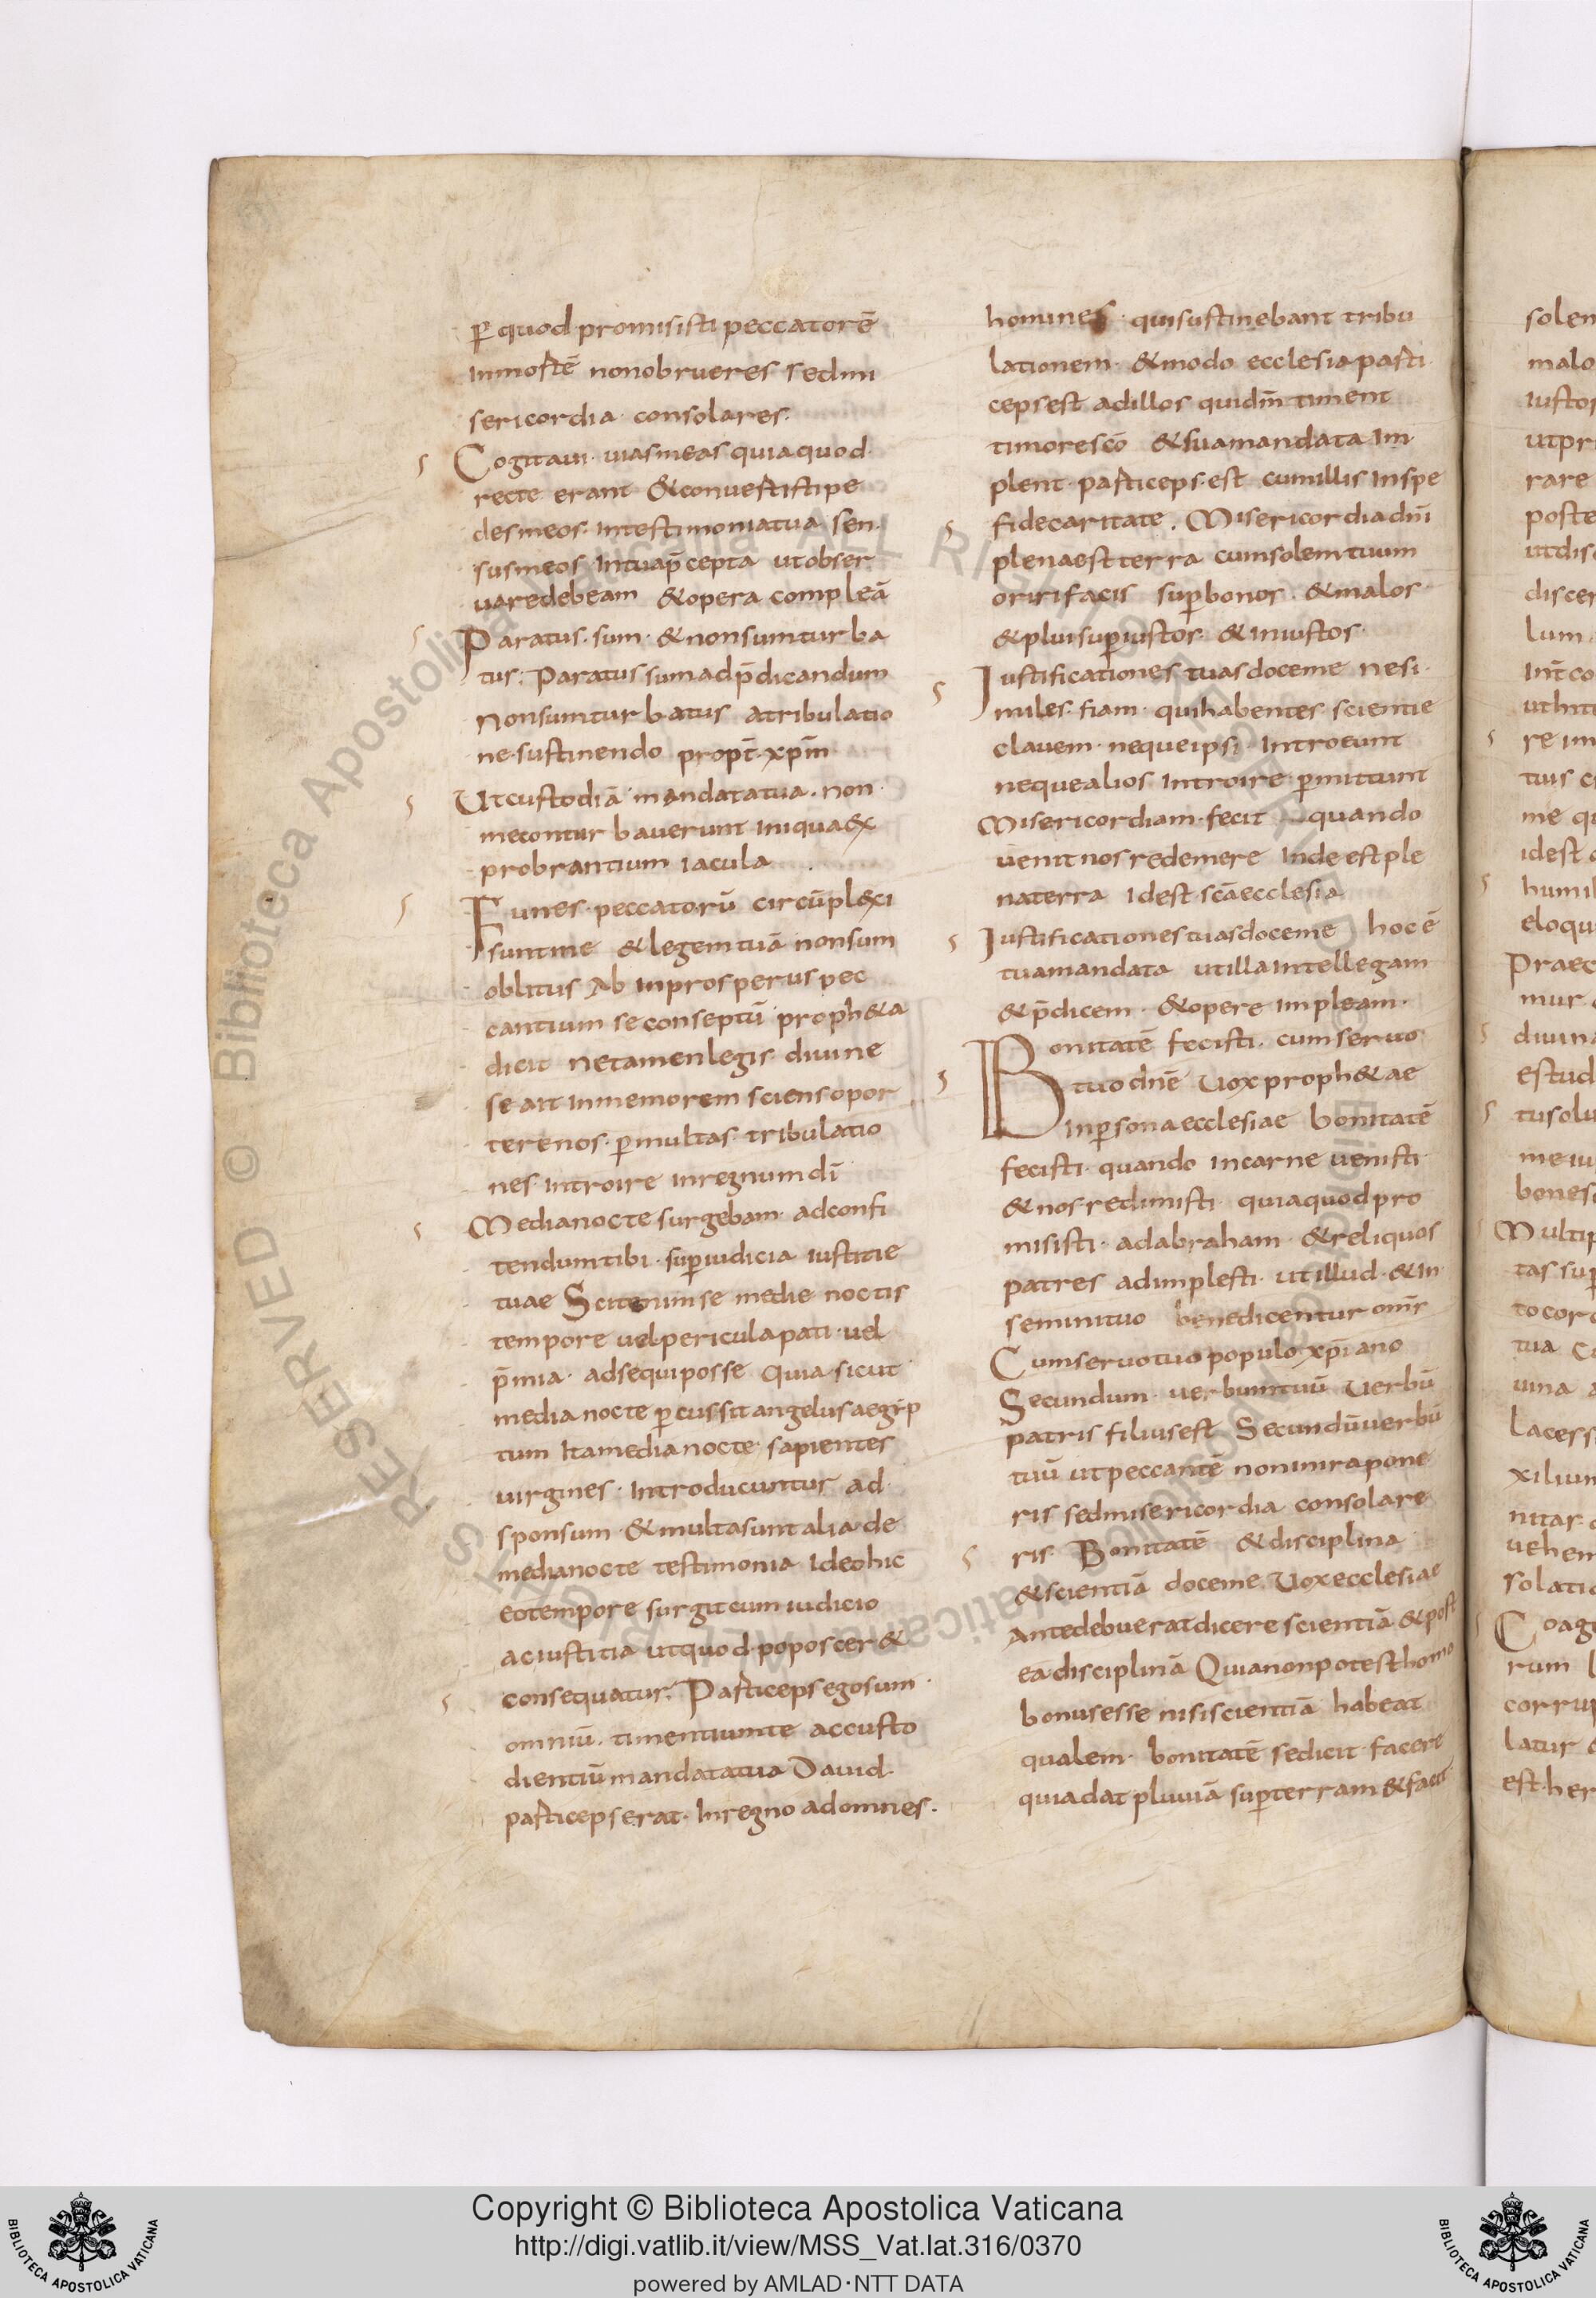 ꝑ quod promisisti peccatorē
inmortē nonobrueres sedmi
sericordia consolares.
Cogitaui uiasmeas quiaquod
recte erant &conuertistipe
desmeos intestimoniatua sen
susmeos intuap̄cepta utobser
uaredebeam &opera compleā
Paratus sum &nonsumturba
tus. Paratus sumadp̄dicandum
Nonsumturbatus atribulatio
ne sustinendo propt̄ xp̄m
Utcustodiā mandatatua non
meconturbauerunt iniqua&x
probrantium iacula
Funes peccatorū circūpl&xi
suntme &legemtuā nonsum
oblitus Ab inprosperus pec
cantium seconseptū proph&a
dicit netamenlegis diuine
se ait inmemorem sciensopor
terenos ꝑmultas tribulatio
nes introire inregnumdī
Medianocte surgebam adconfi
tendumtibi suꝑiudicia iustitie
tuae Scitenimse medie noctis
tempore uelpericulapati uel
p̄mia adsequiposse Quia sicut
media nocte ꝑcussit angelusaegip
tum Itamedianocte sapientes
uirgines introducuntur ad
sponsum &multasuntalia de
medianocte testimonia Ideohic
eotempore surgitcum iudicio
aciustitia utquod poposcer&
consequatur. Particepsegosum
omniū timentiumte accusto
dientiūmandatatua Dauid
particepserat inregno adomnes.
homines quisustinebant tribu
lationem &modo ecclesiaparti
cepsest adillos quidnm̄ timent
timorescō &suamandata im
plent particeps est cumillis inspe
fidecaritate. Misericordiadnī
plenaestterra cumsolemtuum
oririfacis suꝑbonos &malos
&pluisuꝑiustos &iniustos
Iustificationes tuasdoceme nesi
miles fiam quihabentes scientie
clauem nequeipsi introeunt
nequealios introire ꝑmittunt
Misericordiam fecit quando
uenitnosredemere inde estple
naterra idest scāecclesia
Iustificationestuasdoceme hocē
tuamandata utillaintellegam
&p̄dicem &opere impleam
Bonitatē fecisti cumseruo
tuodnē Uoxproph&ae
inꝑsonaecclesiae bonitatē
fecisti quando incarne uenisti
&nosredimisti quiaquodpro
misisti adabraham &reliquos
patres adimplesti utillud &in
seminituo benedicentur omīs
Cumseruotuo populo xp̄iano
Secundum uerbumtuū Uerbū
patris filiusest Secundūuerbū
tuū utpeccantē noninirapone
ris sedmisericordia consolare
ris Bonitatē &disciplina
&scientiā doceme Uoxecclesiae
Antedebueratdicere scientiā &post
eā disciplinā Quianonpotesthomo
bonusesse nisiscientiā habeat
qualem bonitatē sedicit facere
quiadatpluuiā suꝑterram &facit
solem
malo
iustos
utpr
rare
poste
utdis
discer
lum
int̄co
uthu
re im
tuis c
me qu
idest
humil
eloqu
Praec
mur
diuina
estud
tusolu
me iu
bones
Multip
tas suꝑ
tocor
tua
uina
lacess
xilium
nitar
uehem
solatio
Coag
rum
corrup
latur
est her
Copyright © Biblioteca Apostolica Vaticana
http://digi.vatlib.it/view/MSS_Vat.lat.316/0370
powered by AMLAD·NTT DATA
BIBLIOTECA APOSTOLICA VATICANA
BIBLIOTECA APOSTOLICA VATICANA